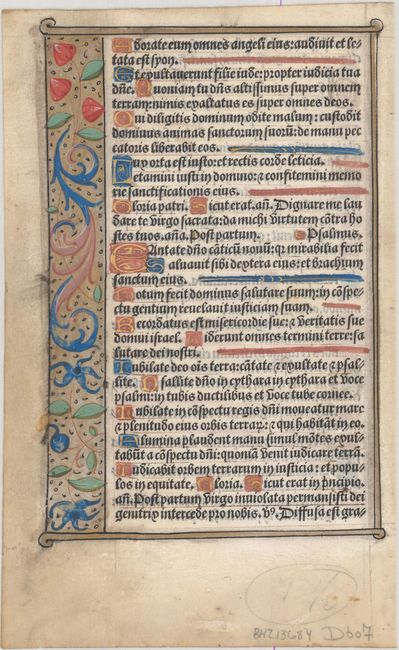 Adorate eum omnes angeli eius: audiuit et le-
tata est syon.
Et exultauerunt filie iude: propter iudicia tua
dñe. Quoniam tu dñs altissimus super omnem
terram: nimis exaltatus es super omnes deos.
Qui diligitis dominum odite malum: custodit
dominus animas sanctorum suorũ: de manu pec
catoris liberabit eos.
Lux orta est iusto: et rectis corde leticia.
Letamini iusti in domino: et confitemini memo
rie sanctificationis eius.
Gloria patri. Sicut erat. añ. Dignare me lau
dare te virgo sacrata: da michi virtutem cõtra ho
stes tuos. aña. Post partum. Psalmus.
Cantate dño cãticũ nouũ: qr mirabilia fecit
Saluauit sibi dextera eius: et brachium
sanctum eius.
Notum fecit dominus salutare suum: in cõspe-
ctu gentium reuelauit iusticiam suam.
Recordatus est misericordie sue: et veritatis sue
domui israel. Uiderunt omnes termini terre: sa
lutare dei nostri.
Iubilate deo oĩs terra: cãtate et exultate et psal-
lite. Psallite dño in cythara in cythara et voce
psalmi: in tubis ductilibus et voce tube cornee.
Iubilate in cõspectu regis dñi moueatur mare
et plenitudo eius orbis terrarꝝ: et qui habitãt in eo.
Flumina plaudent manu simul mõtes exul-
tabũt a cõspectu dñi: quoniã venit iudicare terrã.
Iudicabit orbem terrarum in iusticia: et popu
los in equitate. Gloria. Sicut erat in prĩcipio.
añ. Post partum virgo inuiolata permansisti dei
genitrix intercede pro nobis. vs. Diffusa est gra-
BHZ13684 Db07